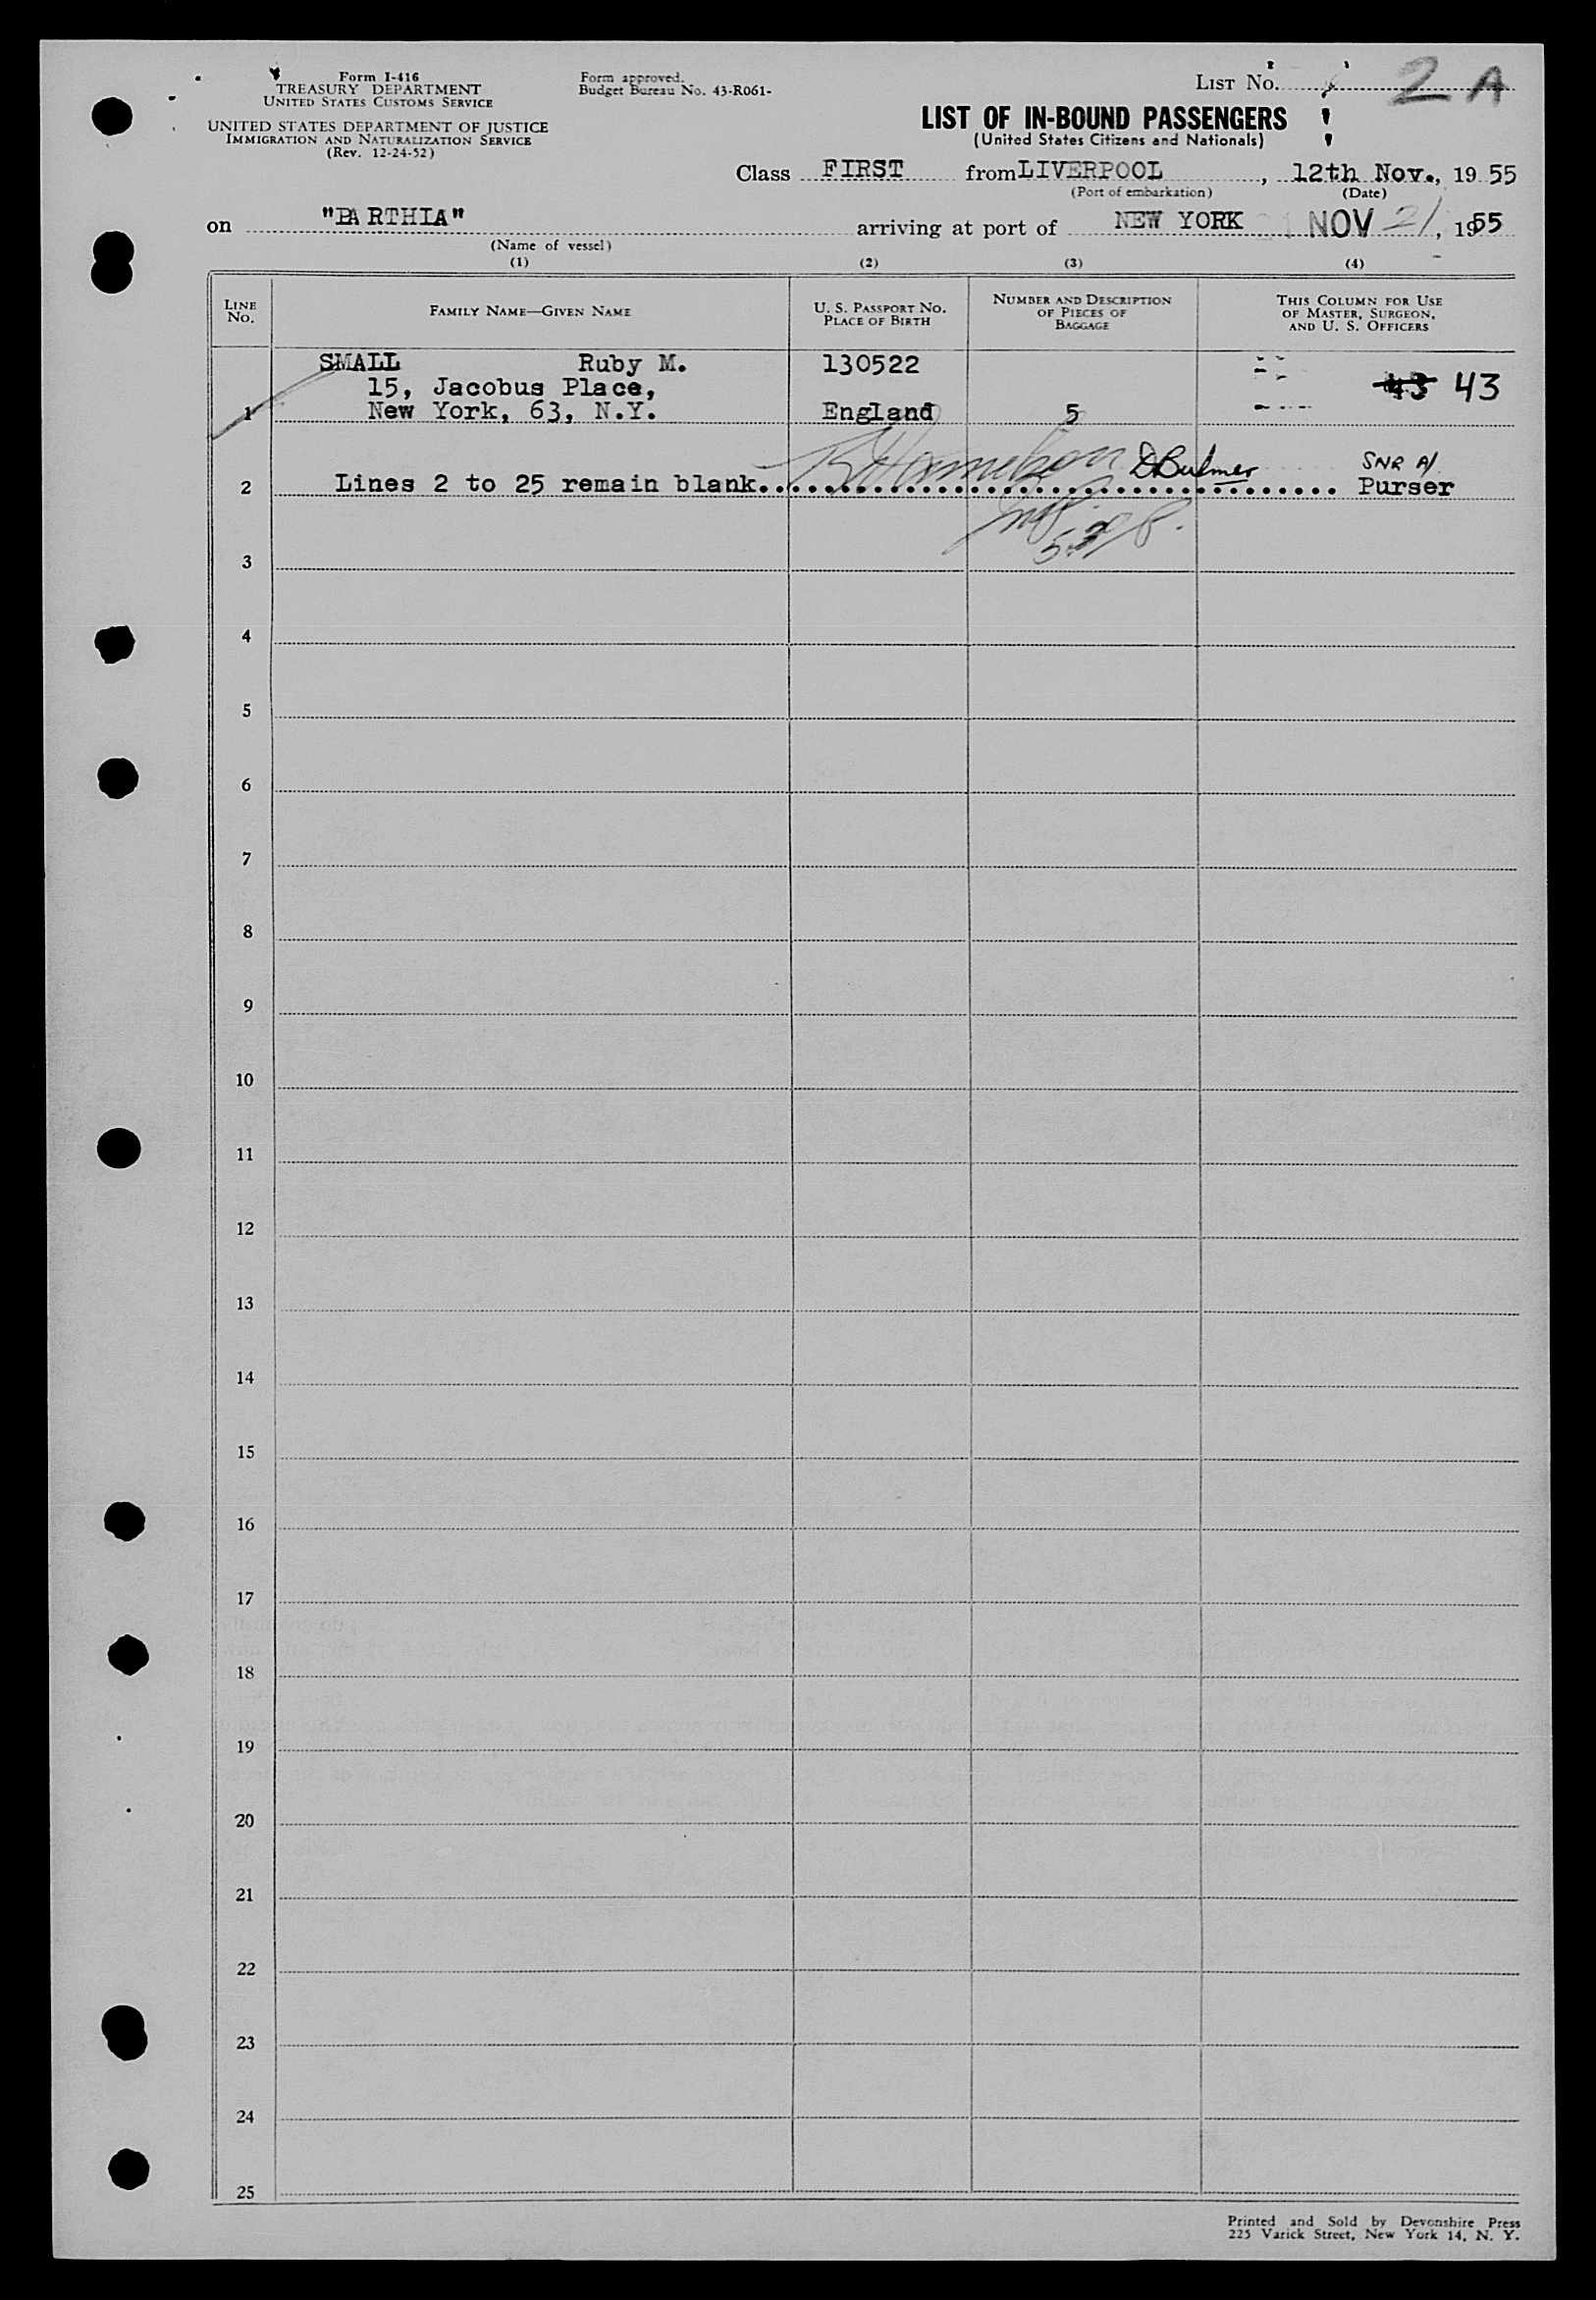 Form I-416
TREASURY DEPARTMENT
UNITED STATES CUSTOMS SERVICE
UNITED STATES DEPARTMENT OF JUSTICE
IMMIGRATION AND NATURALIZATION SERVICE
(Rev. 12-24-52)
Form approved.
Budget Bureau No. 43-R061-
LIST NO. 2 A
LIST OF IN-BOUND PASSENGERS
(United States Citizens and Nationals)
Class FIRST from LIVERPOOL, 12th Nov., 19 55
(Port of embarkation) (Date)
on "PARTHIA" arriving at port of NEW YORK NOV 21, 1955
(Name of vessel)
(1) (2) (3) (4)
LINE NO.
FAMILY NAME—GIVEN NAME
U. S. PASSPORT NO.
PLACE OF BIRTH
NUMBER AND DESCRIPTION
OF PIECES OF
BAGGAGE
THIS COLUMN FOR USE
OF MASTER, SURGEON,
AND U. S. OFFICERS
SMALL Ruby M. 130522
15, Jacobus Place, 43 43
1 New York, 63, N.Y. England 5
DBulmer SNR A/
2 Lines 2 to 25 remain blank Purser
3
4
5
6
7
8
9
10
11
12
13
14
15
16
17
18
19
20
21
22
23
24
25
Printed and Sold by Devonshire Press
225 Varick Street, New York 14, N. Y.